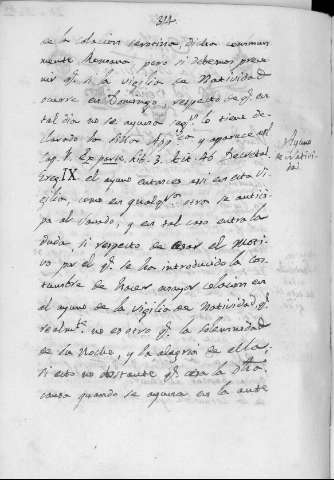 314
de la colacion serotina, dicha commun
mente Romana pero si debemos preve
nir qᵉ. si la Vigilia de Natividad
ocurre en Domingo, respecto de qᵉ. en
tal dia no se ayuna segⁿ. lo tiene de
clarado la Silla Appᶜᵃ. y aparece del
Cap. V. Ex parte Lib. 3. tit. 46 Decretal
Greg. IX. el ayuno entonces asi en esta Vi
gilia, como en qualqᵃ. otra se antici
pa al Savado, y en tal caso entra la
duda, si respecto de cesar el Moti
vo por el qᵉ. se ha introducido la cos
tumbre de hacer mayor colacion en
el ayuno de la Vigilia de Natividad qᵉ.
realmᵗᵉ. no es otro qᵉ. la solemnidad
de la Noche, y la alegria de ella;
si esto no obstante qᵉ. cesa la dha
causa quando se ayuna en la ante
Ayuno
de Nativi
dad